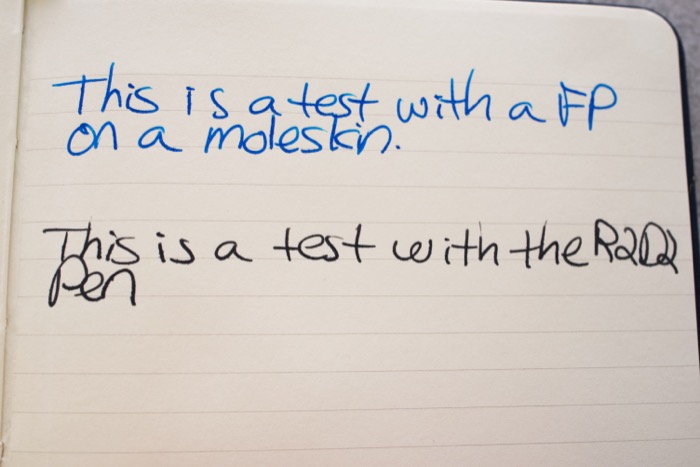 This is a test with a FP
on a moleskin.
This is a test with the R2D2
Pen